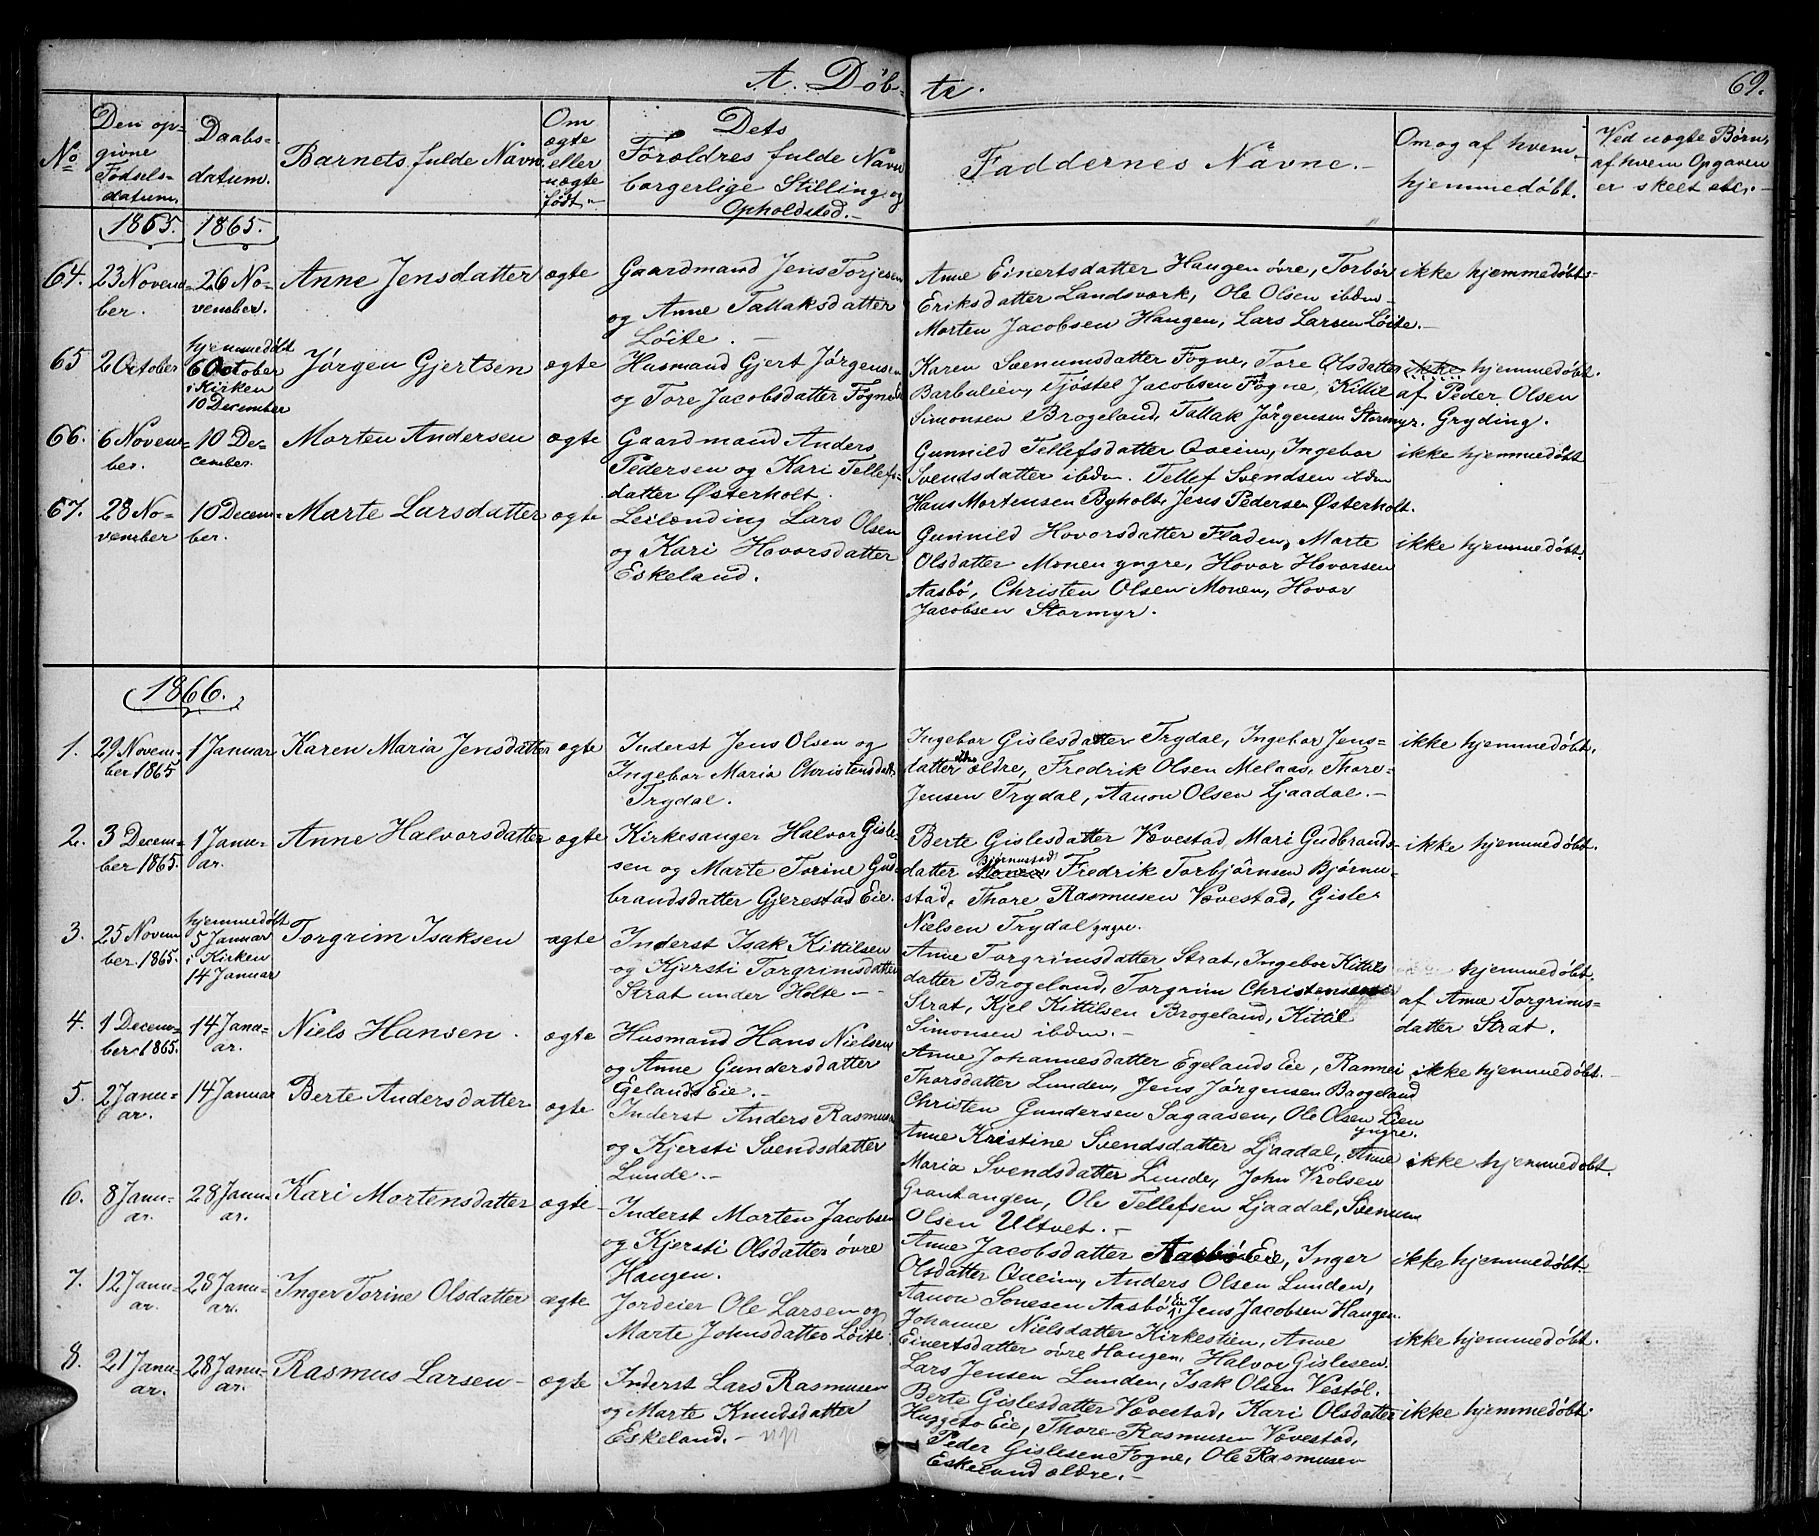 A. Døb- te.
69.
No
Den op-
givne
Fødsels-
datum.
Daabs-
datum.
Barnets fulde Navn
Om
ægte
eller
uægte
født.
Dets
Forældres fulde Navn
borgerlige Stilling og
Opholdsted.
Faddernes Navne.
Om og af hvem
hjemmedøbt.
Ved uægte Børn,
af hvem Opgaven
er skeet etc.
1865.
1865.
64.
23 Novem-
ber.
26 No-
vember.
Anne Jensdatter
ægte
Gaardmand Jens Torjesen
og Anne Tallaksdatter
Løite.
Anne Einertsdatter Haugen øvre, Torbør
Eriksdatter Landsværk, Ole Olsen ibdm
Morten Jacobsen Haugen, Lars Larsen Løite.
ikke hjemmedøbt
65
2 October
hjemmedøbt
6 October
i Kirken
10 December
Jørgen Gjertsen
ægte
Husmand Gjert Jørgensen
og Tore Jacobsdatter Fogne
Karen Svenumsdatter Fogne, Tore Olsdatter
Barbulien, Tjøstel Jacobsen Fogne, Kittil
Simonsen Brogeland, Tallak Jørgensen Stormyr.
ikke hjemmedøbt.
af Peder Olsen
Gryding.
66.
6 Novem-
ber.
10 De-
cember.
Morten Andersen
ægte
Gaardmand Anders
Pedersen og Kari Tellefs-
datter Østerholt.
Gunnild Tellefsdatter Qveim, Ingebor
Svendsdatter ibdm. Tellef Svendsen ibdm
Hans Mortensen Byholt, Jens Pedersen Østerholt.
ikke hjemmedøbt
67.
28 No-
vember
10 Decem-
ber.
Marte Larsdatter
ægte
Leilænding Lars Olsen
og Kari Hovorsdatter
Eskeland.
Gunnild Hovorsdatter Fladen, Marte
Olsdatter Monen yngre, Hovor Hovorsen
Aasbø, Christen Olsen Monen, Hovor
Jacobsen Stormyr.
ikke hjemmedøbt.
1866.
1.
29 Novem-
ber 1865
1 Januar
Karen Maria Jensdatter
ægte
Inderst Jens Olsen og
Ingebor Maria Christensdatt.
Trydal.
Ingebor Gislesdatter Trydal, Ingebor Jens-
datter ældre, Fredrik Olsen Melaas, Thore
Jensen Trydal, Aanon Olsen Ljaadal.
ikke hjemmedøbt.
2.
3 Decem-
ber 1865.
1 Janu-
ar.
Anne Halvorsdatter
ægte
Kirkesanger Halvor Gisle-
sen og Marte Torine Gud-
brandsdatter Gjerestad Eie.
Berte Gislesdatter Vævestad, Mari Gudbrands-
datter Bjørnustad Fredrik Torbjørnsen Bjørnu-
stad, Thore Rasmusen Vævestad, Gisle
Nielsen Trydal yngre.
ikke hjemmedøbt.
3.
25 Novem
ber 1865.
hjemmedøbt
5 Januar
i Kirken
14 Januar
Torgrim Isaksen
ægte
Inderst Isak Kittilsen
og Kjersti Torgrimsdatter
Strat under Holte
Anne Torgrimsdatter Strat, Ingebor Kittils
datter Brogeland, Torgrim Christensen
Strat, Kjel Kittilsen Brogeland, Kittil
Simonsen ibdm.
hjemmedøbt.
af Anne Torgrims-
datter Strat.
4.
1 Decem-
ber 1865.
14 Janu-
ar.
Niels Hansen.
ægte
Husmand Hans Nielsen
og Anne Gundersdatter
Egelands Eie.
Anne Johannesdatter Egelands Eie, Rannei
Thorsdatter Lunden, Jens Jørgensen Brogeland
Christen Gundersen Sagaasen, Ole Olsen Lien
yngre.
ikke hjemmedøbt.
5.
2 Janu-
ar.
14 Januar
Berte Andersdatter
ægte
Inderst Anders Rasmusen
og Kjersti Svendsdatter
Lunde.
Anne Kristine Svendsdatter Ljaadal, Anne
Maria Svendsdatter Lunde, John Vrolsen
Grantangen, Ole Tellefsen Ljaadal, Svenum
Olsen Ultvet.
ikke hjemmedøbt.
6.
8 Janu-
ar.
28 Janu-
ar.
Kari Mortensdatter
ægte
Inderst Morten Jacobsen
og Kjersti Olsdatter øvre
Haugen.
Anne Jacobsdatter Aasbø Eie, Inger
Olsdatter Qveim, Anders Olsen Lunden,
Aanon Sonesen Aasbø Eie, Jens Jacobsen Haugen.
ikke hjemmedøbt.
7.
12 Janu-
ar.
28 Janu-
ar.
Inger Torine Olsdatter
ægte
Jordeier Ole Larsen og
Marte Johnsdatter Løite
Johanne Nielsdatter Kirkestien, Anne
Einertsdatter øvre Haugen, Halvor Gislesen
Lars Jensen Lunden, Isak Olsen Vestøl.
ikke hjemmedøbt.
8.
21 Janu-
ar.
28 Janu-
ar.
Rasmus Larsen
ægte
Inderst Lars Rasmusen
og Marte Knudsdatter
Eskeland.
Berte Gislesdatter Vævestad, Kari Olsdatter
Huggeto Eie, Thore Rasmusen Vævestad,
Peder Gislesen Fogne, Ole Rasmusen
Eskeland ældre.
ikke hjemmedøbt